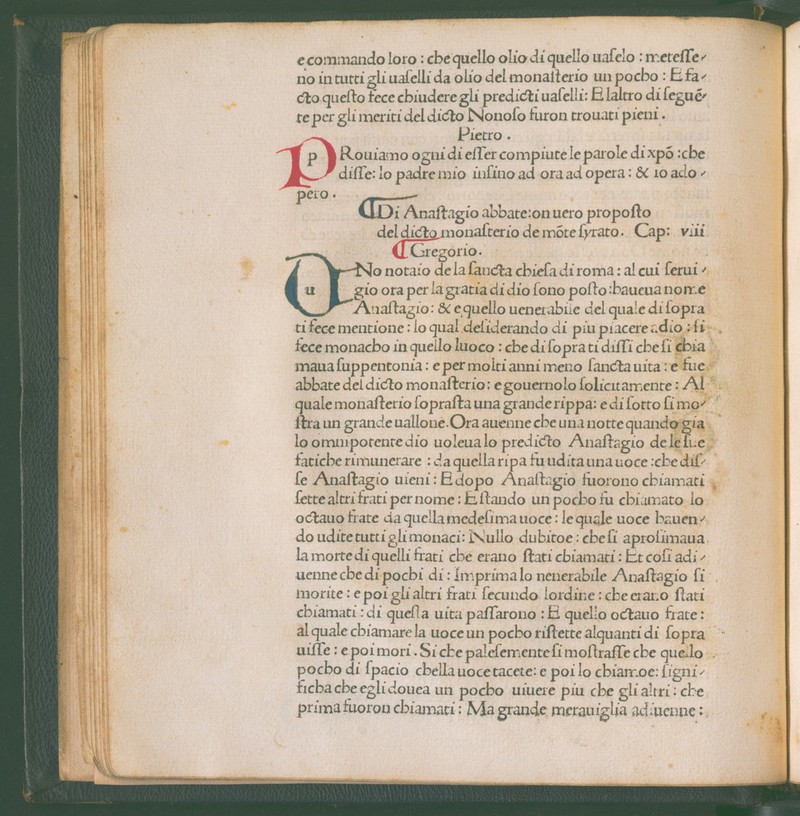 e commando loro : che quello olio di quello uaſelo : meteſſe-
no in tutti gli uaſelli da olio del monaſterio un pocho : E fa-
cto queſto fece chiudere gli predicti uaſelli: E laltro di ſeguē-
te per gli meriti del dicto Nonoſo furon trouati pieni .
Pietro .
PRouiamo ogni di eſſer compiute le parole di xpō :che
diſſe: lo padre mio inſino ad ora ad opera : & io ado-
pero .
Di Anaſtagio abbate:on uero propoſto
del dicto monaſterio de mōte ſyrato. Cap: viii
Gregorio.
uNo notaio de la ſancta chieſa di roma : al cui ſerui-
gio ora per la gratia di dio ſono poſto:haueua nome
Anaſtagio: & e quello uenerabile del quale di ſopra
ti fece mentione : lo qual deſiderando di piu piacere adio : ſi
fece monacho in quello luoco : che di ſopra ti diſſi che ſi chia
maua ſuppentonia : e per molti anni meno ſancta uita : e fue
abbate del dicto monaſterio: e gouernolo ſolicitamente : Al
quale monaſterio ſopraſta una grande rippa: e di ſotto ſi mo-
ſtra un grande uallone. Ora auenne che una notte quando gia
lo omnipotente dio uoleua lo predicto Anaſtagio de le ſue
fatiche rimunerare : da quella ripa fu udita una uoce :che diſ-
ſe Anaſtagio uieni : E dopo Anaſtagio fuorono chiamati
ſette altri frati per nome : E ſtando un pocho fu chiamato lo
octauo frate da quella medeſima uoce : le quale uoce hauen-
do udite tutti gli monaci: Nullo dubitoe : che ſi aproſimaua
la morte di quelli frati che erano ſtati chiamati : Et coſi adi-
uenne che di pochi di : Imprima lo nenerabile Anaſtagio ſi
morite : e poi gli altri frati ſecundo lordine : che erano ſtati
chiamati : di queſta uita paſſarono : E quello octauo frate :
al quale chiamare la uoce un pocho riſtette alquanti di ſopra
uiſſe : e poi mori . Si che paleſemente ſi moſtraſſe che quello
pocho di ſpacio chella uoce tacete: e poi lo chiamoe: ſigni-
ficha che egli douea un pocho uiuere piu che gli altri : che
prima fuoron chiamati : Ma grande merauiglia adiuenne :